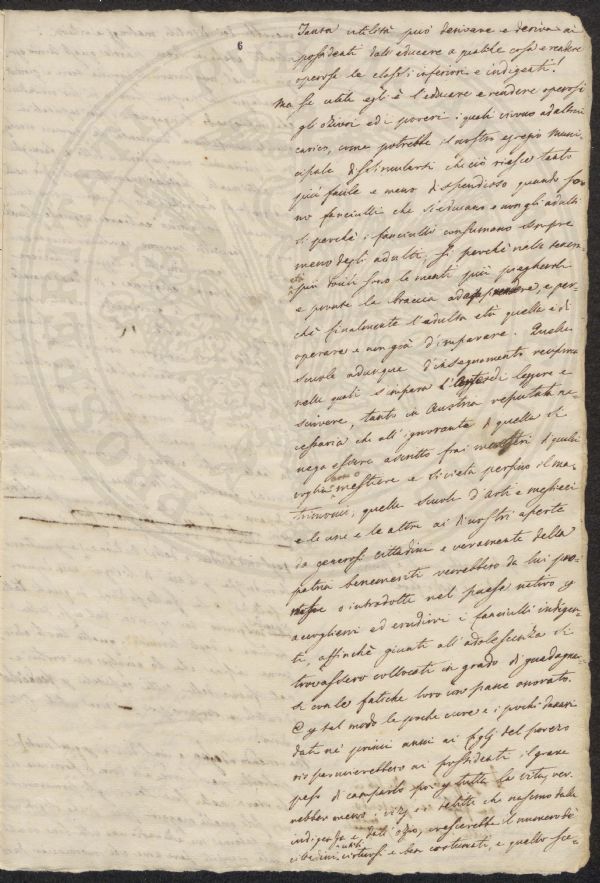 6
Tanta utilità può derivare e deriva ai
possidenti dall'educare a qualche cosa e rendere
operose le classi inferiori e indigenti!
Ma se utile egli è l'educare e rendere operosi
gli oziosi ed i poveri i quali vivono ad altrui
carico, come potrebbe il nostro egregio muni-
cipale dissimularsi che ciò riesce tanto
più facile e meno dispendioso quando so-
no fanciulli che si educano e non gli adulti
sì perchè i fanciulli consumano sempre
meno degli adulti, sì perchè nelle tenere
età più docili sono le menti più pieghevoli
e pronte le braccia ad apprendere, e per-
chè finalmente l'adulta età quella è di
operare e non già d'imparare. Quelle
scuole adunque d'insegnamento reciproco
nelle quali s'impara l'arte di leggere e
scrivere, tanto in Austria reputata ne-
cessaria che all'ignorante di quella si
nega essere ascritto fra i mestieri di qual
voglia mestiere e società persino il ma-
trimonio; quelle scuole d'arti e mestieri
e le une e le altre ai dì nostri aperte
da generosi cittadini e veramente della
patria benemeriti verrebbero da lui pro-
mosse o introdotte nel paese nativo p
accogliervi ed erudirvi i fanciulli indigen-
ti, affinchè giunti all'adolescenza si
trovassero collocati in grado di guadagnar-
si con le fatiche loro un pane onorato.
E p tal modo le poche cure e i pochi danari
dati nei primi anni ai figli del povero
risparmierebbero ai possidenti il grave
peso di camparlo poi p tutta la vita, ver-
rebber meno i vizj e i delitti che nascono dalla
indigenza e dall'ozio, crescerebbe il numero de'
cittadini utili, industriosi e ben costumati, e quello sce-